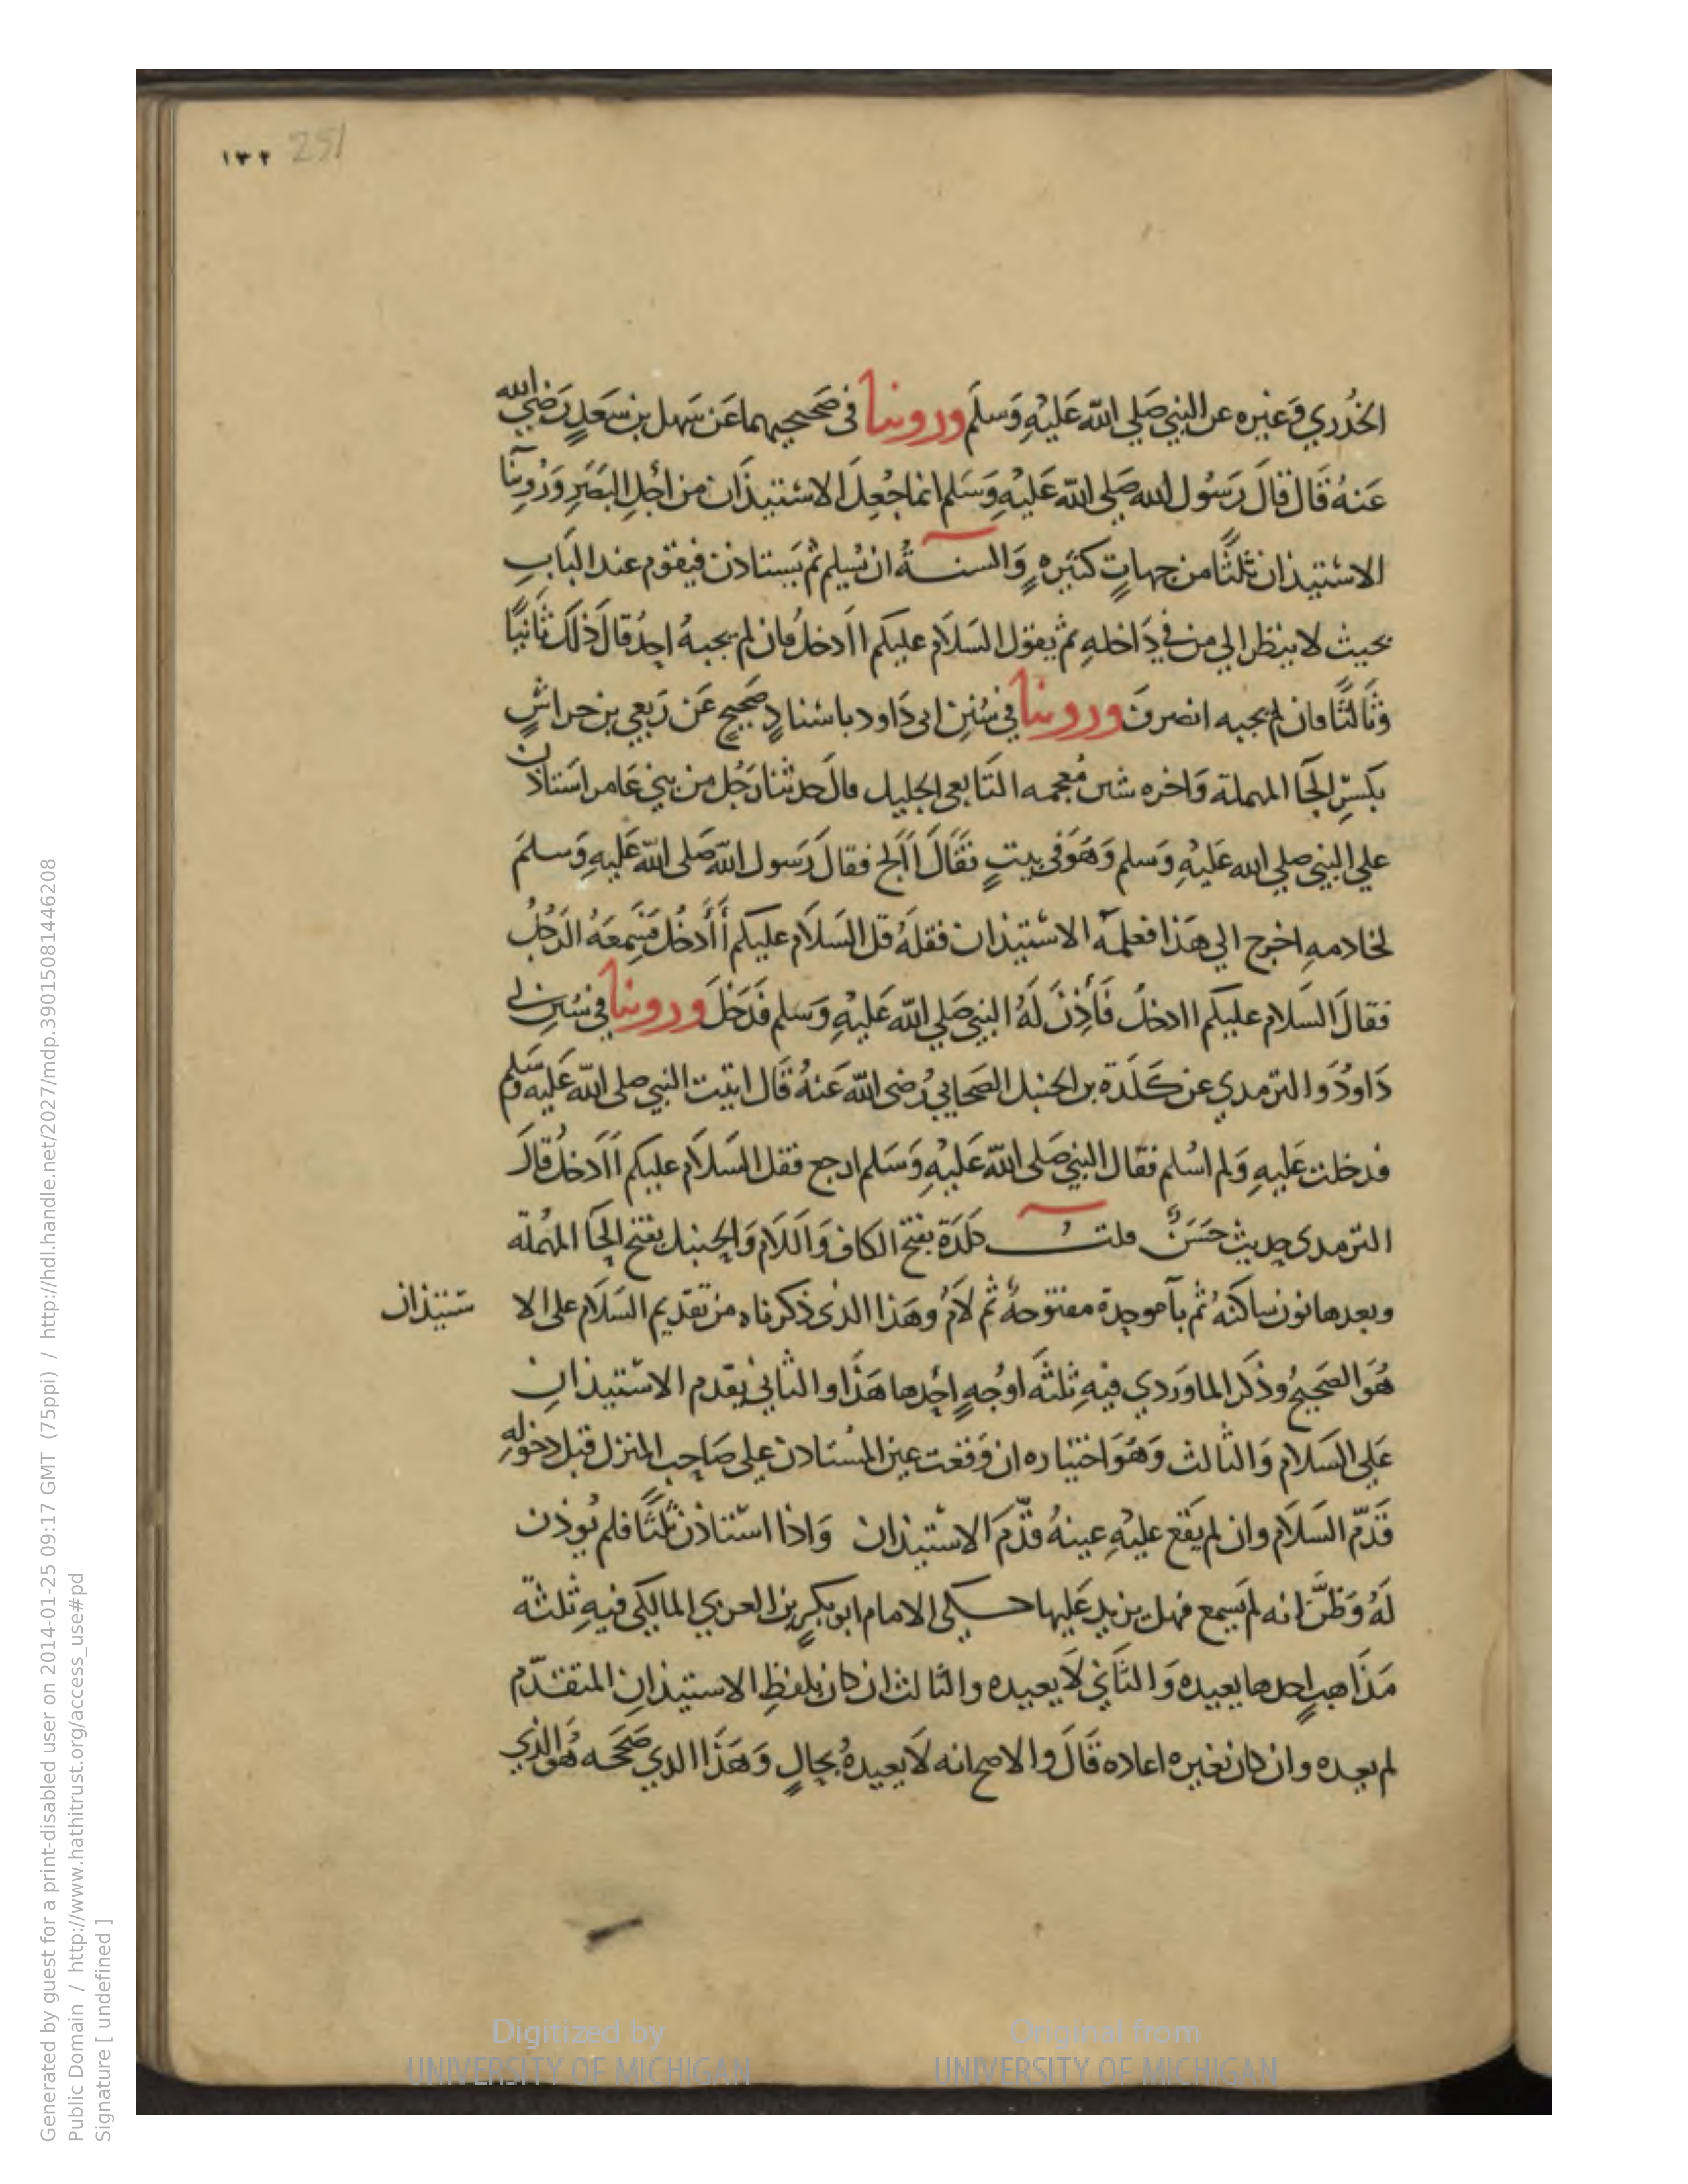 ١٣٢ 251
الخُدْري وَغيره عن النبي صَلي الله عَليْهِ وَسلم ورويـنا فى صَحيحيهما عَن سَهل بن سَعَدٍ رَضي الله
عَنهُ قَال قالَ رَسُول الله صَلي الله عَليْهِ وَسَلم انما جُعِلَ الاسْتيذان من اجْلِ البَصَرِ وَرُوينا
الاسْتيذان ثلثًا من جهاتٍ كثيَره وَالسنـةُ ان يُسلم ثم يَستاذن فيقوم عند البَابِ
بحيث لا ينظر الي من في دَاخلهِ ثم يقول السَلاَم عليكم اادخل فان لم يجبهُ احدُ قالَ ذلك ثَانيًا
وثَالثًا فان لم يجبه انصرفَ ورويـنا في سُنِن ابى دَاود باسْنادٍ صَحيحٍ عَن رَبعي بن حراشٍ
بكسَرِ الحَا المهملة وَاخره شين مُعجمه التَابعى الجليل قالَ حدثنا رَجُل من بني عَامر استَاذن
علي النبي صلي الله عَليْهِ وَسلم وَهُوَ في بيتٍ فقَالَ أألج فقالَ رَسول الله صَلى الله عَليهِ وَسلمَ
لخادمهِ اخرج الي هَذا فعلمه الاسْتيذان فقلهُ قل السَلاَم عليكم أأدخُل فسَمِعَهُ الرَجُلُ
فقالَ السَلام عليكم اادخل فَأذِنَ لَهُ النبي صَلي الله عَليْهِ وَسَلم فَدَخلَ ورويـنا في سُنِن ابي
دَاودُ وَالترمدي عن كَلَدَة بن الحنبل الصَحابي رُضى الله عَنهُ قَال اتيت النبي صلى الله عَليهِ وسَلم
فدخلت عَليهِ وَلم اسْلم فقال النبي صَلى الله عَليْهِ وَسَلم ارجع فقل السَلاَم عليكم أادخل قالَ
الترمدى حديث حَسَنٌ قلت كلَدَة بفتح الكاف وَاللاَم وَالحنبل بفتح الحَا المهْملة
وبعدها نون ساكنهُ ثم بآ موحدة مفتوحهٌ ثم لاَمُ وهَذا الذى ذكرناه من تقديم السَلاَم على الا ستيذان
هُوَ الصَحيحُ وذكر الماوَردي فيهِ ثلثَه اوجُهٍ احدها هَذَا والثاني يقدم الاسْتيذانِ
عَلي السَلام وَالثالث وَهُوَ اختياره ان وَقعت عين المسْتاذن علي صَاحب المنزل قبل دخولهِ
قَدّم السَلاَم وان لم يَقع عليْهِ عينهُ قدَّم الاسْتيذان وَاذا اسْتاذن ثلثًا فلم يُوذن
لَهُ وَظنّ انه لم يَسمع فهل يزيد عَليها حـكي الامام ابو بكرٍ بن العربي المالكي فيهِ ثلثه
مَذَاهب احدها يعيده وَالثَاني لاَ يعيده والثالث ان كان بلفظِ الاستيذانِ المتقدّم
لم يعده وان كان بغيره اعاده قَالَ والاصح انه لاَ يعيدهُ بحالٍ وَهَذَا الدي صَححه هُوَ الذي
Generated by guest for a print-disabled user on 2014-01-25 09:17 GMT (75ppi) / http://hdl.handle.net/2027/mdp.39015081446208
Public Domain / http://www.hathitrust.org/access_use#pd
Signature [ undefined ]
Digitized by
UNIVERSITY OF MICHIGAN
Original from
UNIVERSITY OF MICHIGAN